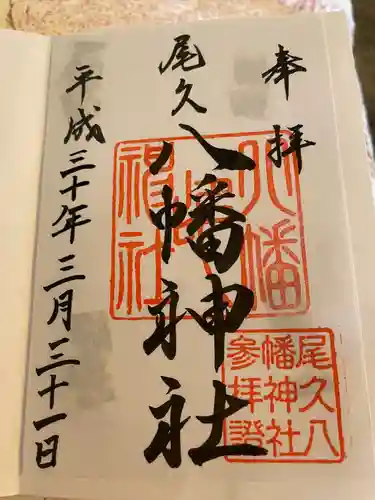 奉拝
尾久
八幡神社
平成三十年三月三十一日
八幡
神社
尾久八
幡神社
参拝證